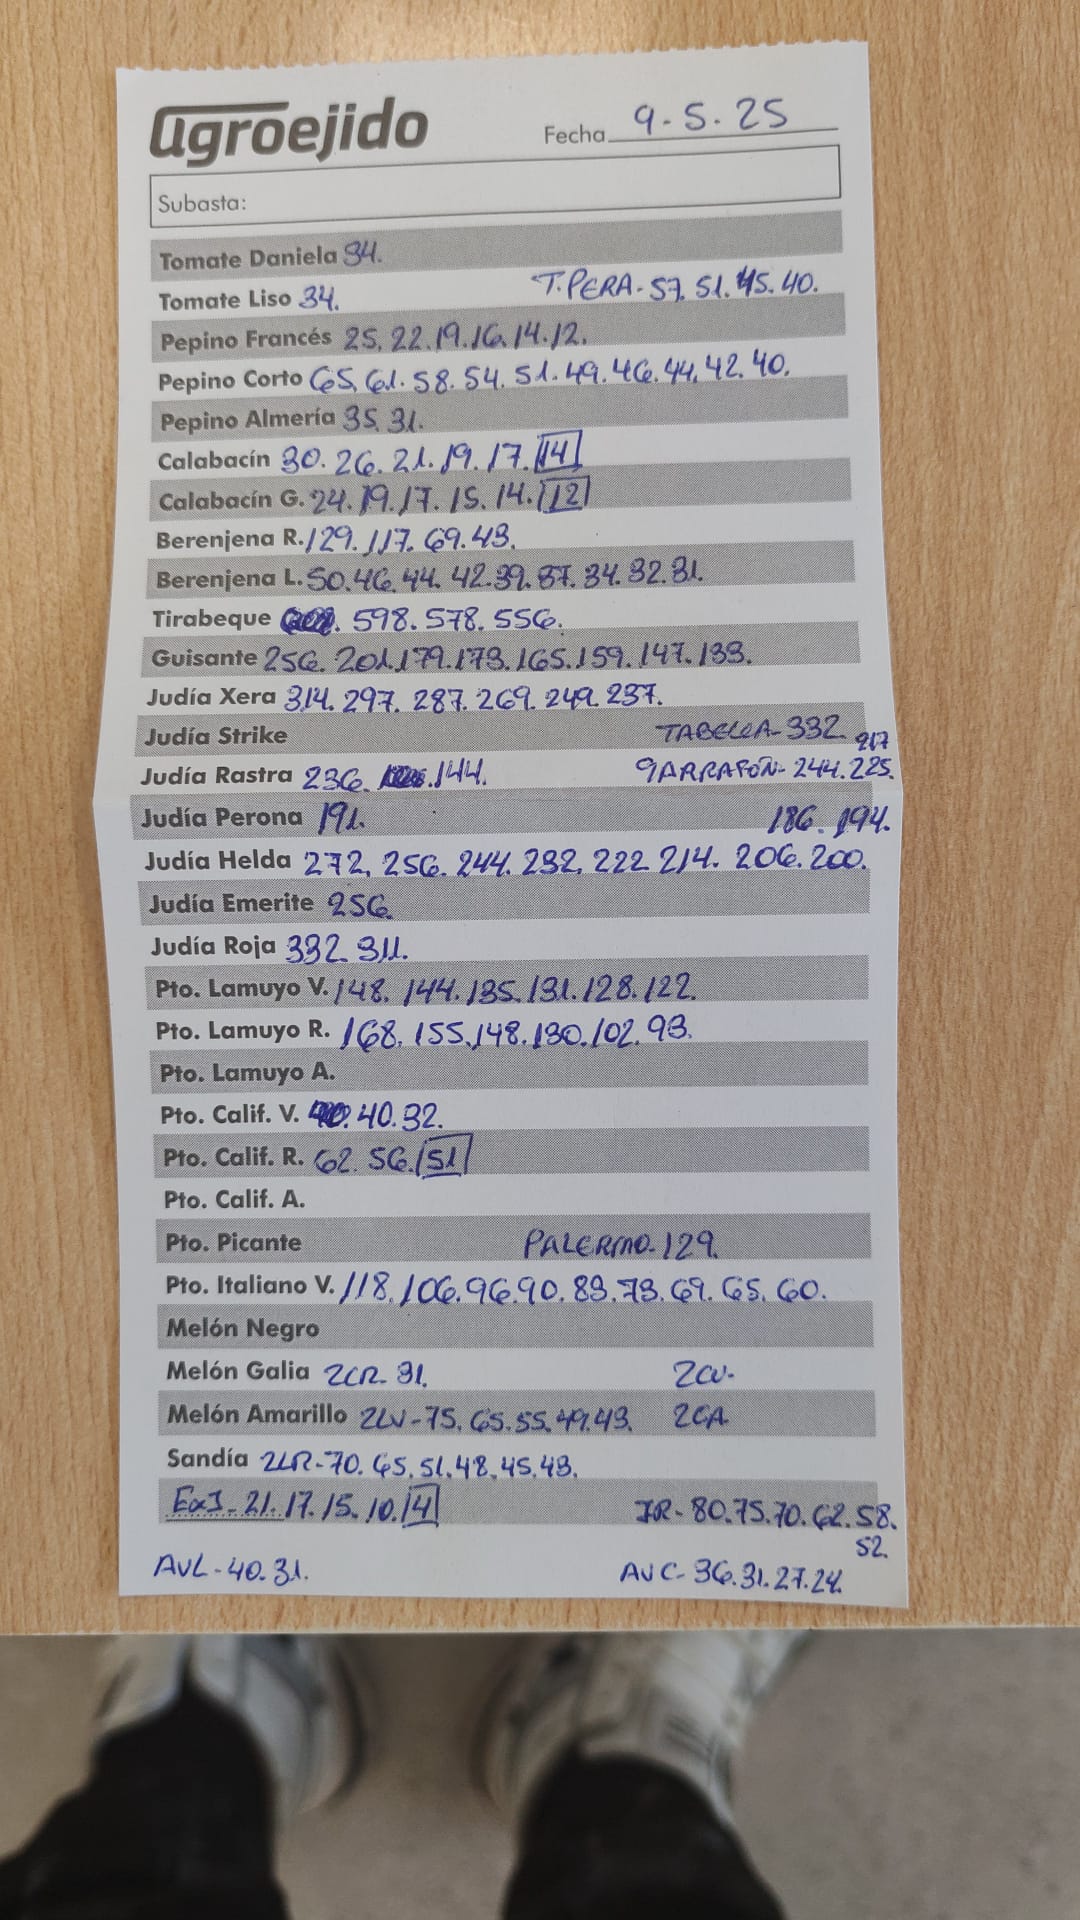 agroejido Fecha 9-5-25
Subasta:
Tomate Daniela 34.
Tomate Liso 34. T.PERA-57.51.45.40.
Pepino Francés 25.22.19.16.14.12.
Pepino Corto 65.61.58.54.51.49.46.44.42.40.
Pepino Almería 35.31.
Calabacín 30.26.21.19.17.14
Calabacín G. 24.19.17.15.14.12
Berenjena R. 129.117.69.43.
Berenjena L. 50.46.44.42.39.37.34.32.31.
Tirabeque 598.578.556.
Guisante 256.201.179.173.165.159.147.133.
Judía Xera 314.297.287.269.249.237.
Judía Strike TABELLA-332
217
Judía Rastra 236. 144. GARRAFÓN-244.225.
Judía Perona 191. 186.194.
Judía Helda 272.256.244.232.222.214.206.200.
Judía Emerite 256.
Judía Roja 332.311.
Pto. Lamuyo V. 148.144.135.131.128.122.
Pto. Lamuyo R. 168.155.148.130.102.93.
Pto. Lamuyo A.
Pto. Calif. V. 40.32.
Pto. Calif. R. 62.56.51
Pto. Calif. A.
Pto. Picante PALERMO-129.
Pto. Italiano V. 118.106.96.90.83.73.69.65.60.
Melón Negro
Melón Galia 2CR-31. 2CV-
Melón Amarillo 2LV-75.65.55.49.43. 2CA
Sandía 2LR-70.65.51.48.45.43.
ExJ-21.17.15.10.4 IR-80.75.70.62.58.
52.
AVL-40.31. AVC-36.31.27.24.